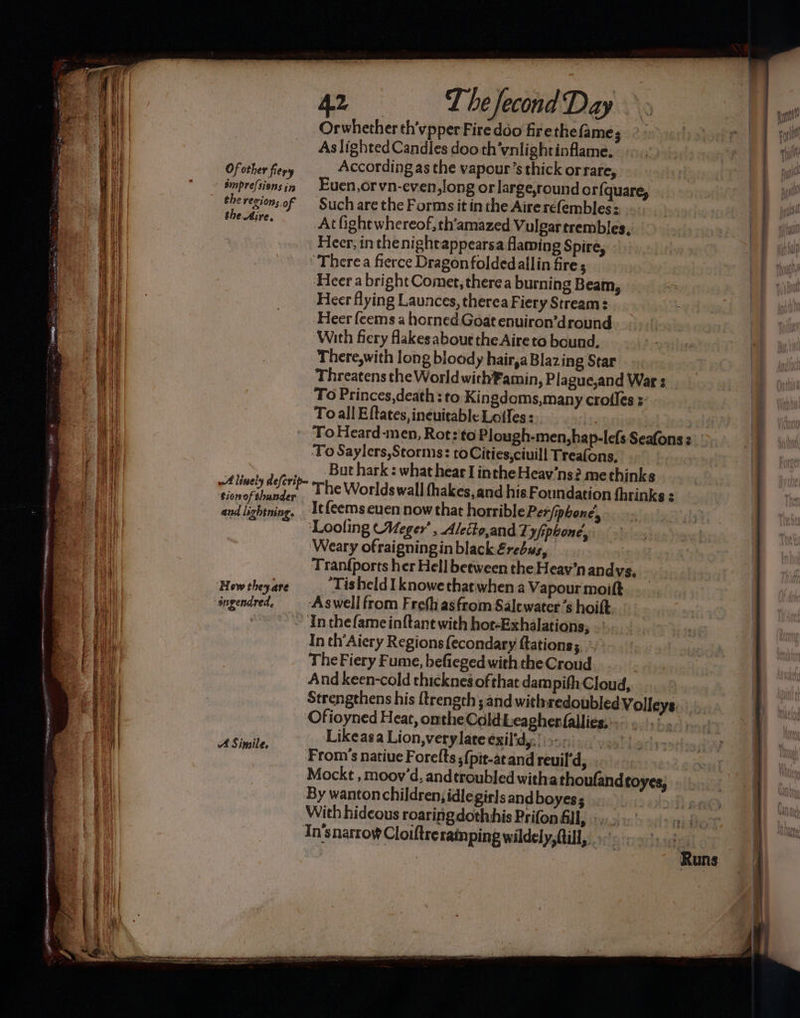 42 The ſecond Day
Or whether th'vpper Fire doo fire the ſame;
As lighted Candles doo th'vnlight inflame.
Of other fiery
impreſsions in
the regions of
the Aire.
According as the vapour's thick or rare,
Euen, or vn-even, long or large, round or ſquare,
Such are the Forms it in the Aire reſembles:
At ſight whereof, th'amazed Vulgar trembles.
Heer, in the night appears a flaming Spire,
There a fierce Dragon folded all in fire;
Heer a bright Comet, there a burning Beam,
Heer flying Launces, there a Fiery Stream:
Heer ſeems a horned Goat enuiron'd round
With fiery flakes about the Aire to bound.
There, with long bloody hair, a Blazing Star
Threatens the World with Famin, Plague, and War:
To Princes, death: to Kingdoms, many croſſes:
To all Eſtates, ineuitable Loſſes:
To Heard-men, Rot: to Plough-men, hap-leſs Seaſons:
To Saylers, Storms: to Cities, ciuill Treaſons.
A liuely deſcrip-
tion of thunder
and lightning.
But hark: what hear I in the Heav'ns? me thinks
The Worlds wall ſhakes, and his Foundation ſhrinks:
It ſeems euen now that horrible Perſiphoné,
Looſing Meger', Alecto, and Tyſiphoné,
Weary of raigning in black Erebus,
Tranſports her Hell between the Heav'n and vs.
How they are
ingendred.
'Tis held I knowe that when a Vapour moiſt
As well from Freſh as from Salt water's hoiſt
In the ſame inſtant with hot-Exhalations,
In th'Aiery Regions ſecondary ſtations;
The Fiery Fume, beſieged with the Croud
And keen-cold thicknes of that dampiſh Cloud,
Strengthens his ſtrength; and with redoubled Volleys
Of ioyned Heat, on the Cold Leagher ſallies.
A Simile.
Like as a Lion, very late exil'd,
From's natiue Foreſts; ſpit-at and reuil'd,
Mockt, moov'd, and troubled with a thouſand toyes,
By wanton children, idle girls and boyes;
With hideous roaring doth his Priſon fill,
In's narrow Cloiſtre ramping wildely, ſtill,
Runs